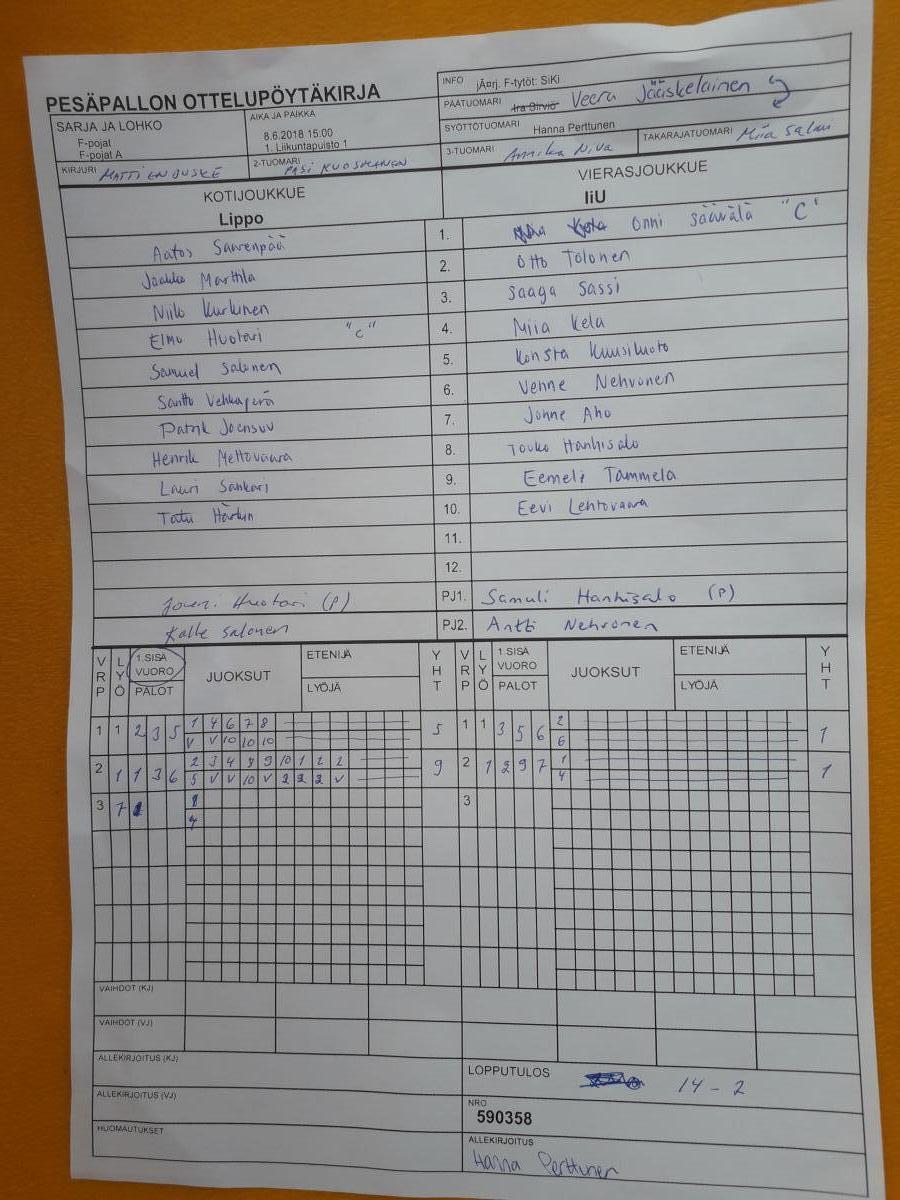 PESÄPALLON OTTELUPÖYTÄKIRJA
INFO jÄprj. F-tytöt: SiKi
PÄÄTUOMARI Veera Jääskeläinen
SYÖTTÖTUOMARI Hanna Perttunen
3-TUOMARI Annika Niva TAKARAJATUOMARI Miia Salmi
SARJA JA LOHKO
F-pojat
F-pojat A
AIKA JA PAIKKA
8.6.2018 15:00
1. Liikuntapuisto 1
KIRJURI MATTI ENBUSKE 2-TUOMARI PASI KUOSMANEN
KOTIJOUKKUE VIERASJOUKKUE
Lippo IiU
Aatos Saarenpää 1. Onni Säävälä "C"
Jaakko Marttila 2. Otto Tolonen
Niilo Kurkinen 3. Saaga Sassi
Elmo Huotari "C" 4. Miia Kela
Samuel Salonen 5. Konsta Kuusiluoto
Santtu Vehkaperä 6. Venne Nehvonen
Patrik Joensuu 7. Jonne Aho
Henrik Mettovaara 8. Touko Hanhisalo
Lauri Sankari 9. Eemeli Tammela
Tatu 10. Eevi Lehtovaara
11.
12.
Jouni Huotari (P) PJ1. Samuli Hanhisalo (P)
Kalle Salonen PJ2. Antti Nehvonen
VRP LYÖ 1.SISÄ VUORO PALOT JUOKSUT ETENIJÄ LYÖJÄ YHT VRP LYÖ 1.SISÄ VUORO PALOT JUOKSUT ETENIJÄ LYÖJÄ YHT
1 1 2 3 5 1 4 6 7 8 5 1 1 3 5 6 2 1
V V 10 10 10 6
2 1 1 3 6 2 3 4 8 9 10 1 2 2 9 2 1 2 9 7 1 1
5 V V 10 V 2 2 2 V 4
3 7 3
VAIHDOT (KJ)
VAIHDOT (VJ)
ALLEKIRJOITUS (KJ)
ALLEKIRJOITUS (VJ)
HUOMAUTUKSET
LOPPUTULOS 14 - 2
NRO
590358
ALLEKIRJOITUS
Hanna Perttunen